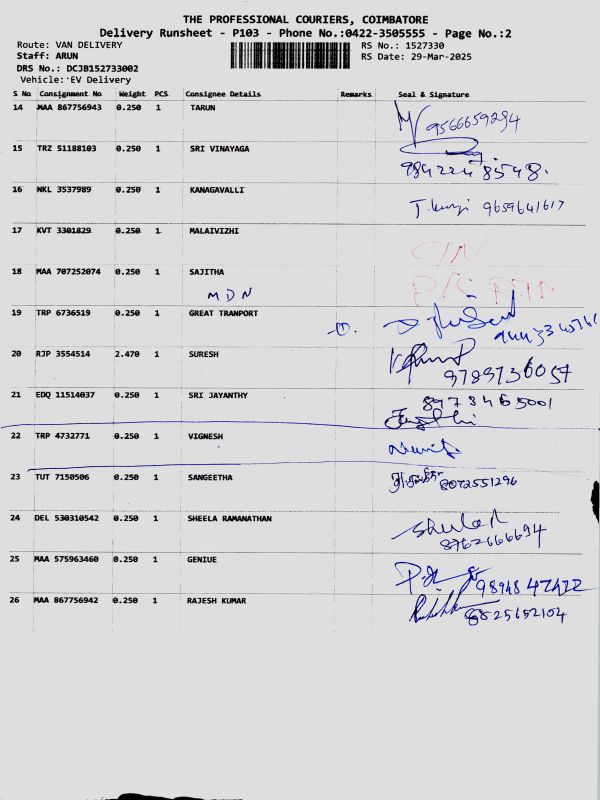 THE PROFESSIONAL COURIERS, COIMBATORE
Delivery Runsheet - P103 - Phone No.:0422-3505555 - Page No.:2
Route: VAN DELIVERY RS No.: 1527330
Staff: ARUN RS Date: 29-Mar-2025
DRS No.: DCJB152733002
Vehicle: EV Delivery
S No Consignment No Weight PCS Consignee Details Remarks Seal & Signature
14 MAA 867756943 0.250 1 TARUN
9566659294
15 TRZ 51188103 0.250 1 SRI VINAYAGA
9842248548.
16 NKL 3537989 0.250 1 KANAGAVALLI
9659641617
17 KVT 3301829 0.250 1 MALAIVIZHI
18 MAA 707252074 0.250 1 SAJITHA
MDN
19 TRP 6736519 0.250 1 GREAT TRANPORT
20 RJP 3554514 2.470 1 SURESH
9789736057
21 EDQ 11514037 0.250 1 SRI JAYANTHY
8973465001
22 TRP 4732771 0.250 1 VIGNESH
23 TUT 7150506 0.250 1 SANGEETHA
8072551296
24 DEL 530310542 0.250 1 SHEELA RAMANATHAN
8762666694
25 MAA 575963460 0.250 1 GENIUE
26 MAA 867756942 0.250 1 RAJESH KUMAR
8825652104